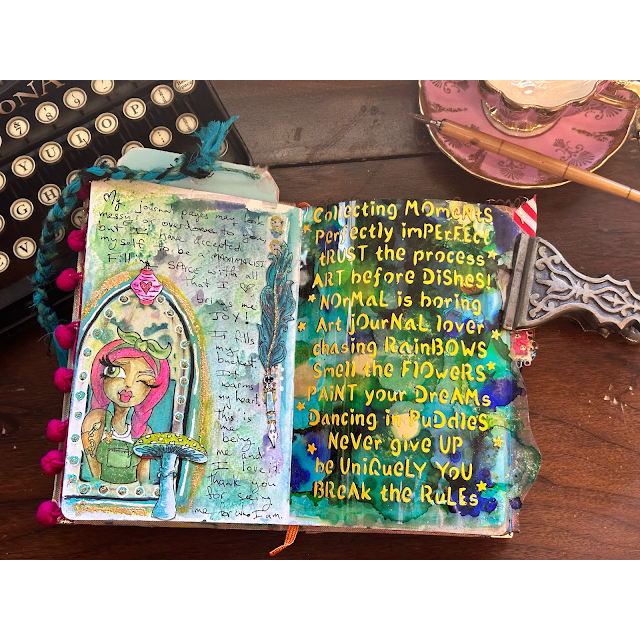 ONA
Y U L O P
G H
My journal pages may look
messy or overdone to you
but I have accepted
myself to be a maximalist
Filling space with all
that I ♡
brings me
JOY!
It fills
my
bucket
It
warms
my heart
this is
me
being
me and
I love it
thank you
for seeing
me for who I am.
Collecting MOmeNtS
Perfectly imPErFEcT
tRUST the process
ART before DiSHeS!
NOrMaL is boring
Art jOurNaL lover
chasing RainBOWS
Smell the FlOwERS
PAiNT your DreAMs
Dancing in PuDdleS
NeVer giVe UP
be UniQueLY YoU
BReAk the RuLEs